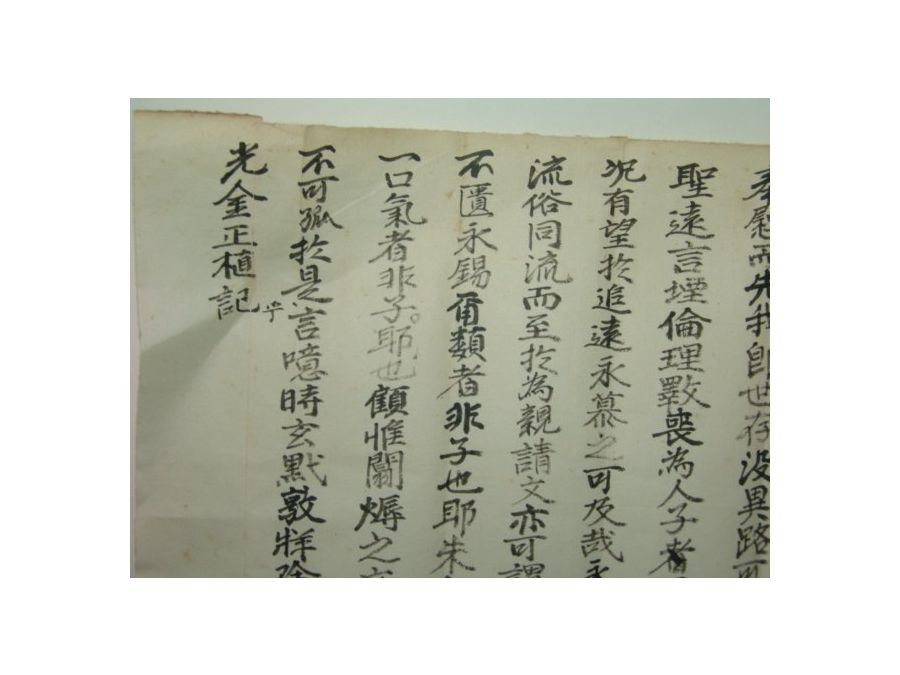 奉慰而先我卽世存没異路可
聖遠言堙倫理斁喪為人子者
况有望於追遠永慕之可及哉
流俗同流而至於為親請文亦可謂
不匱永錫爾類者非子也耶朱
一口氣者非子耶也顧惟闒
之
不可孤於是言噫時玄黓敦牂除
光金正植記